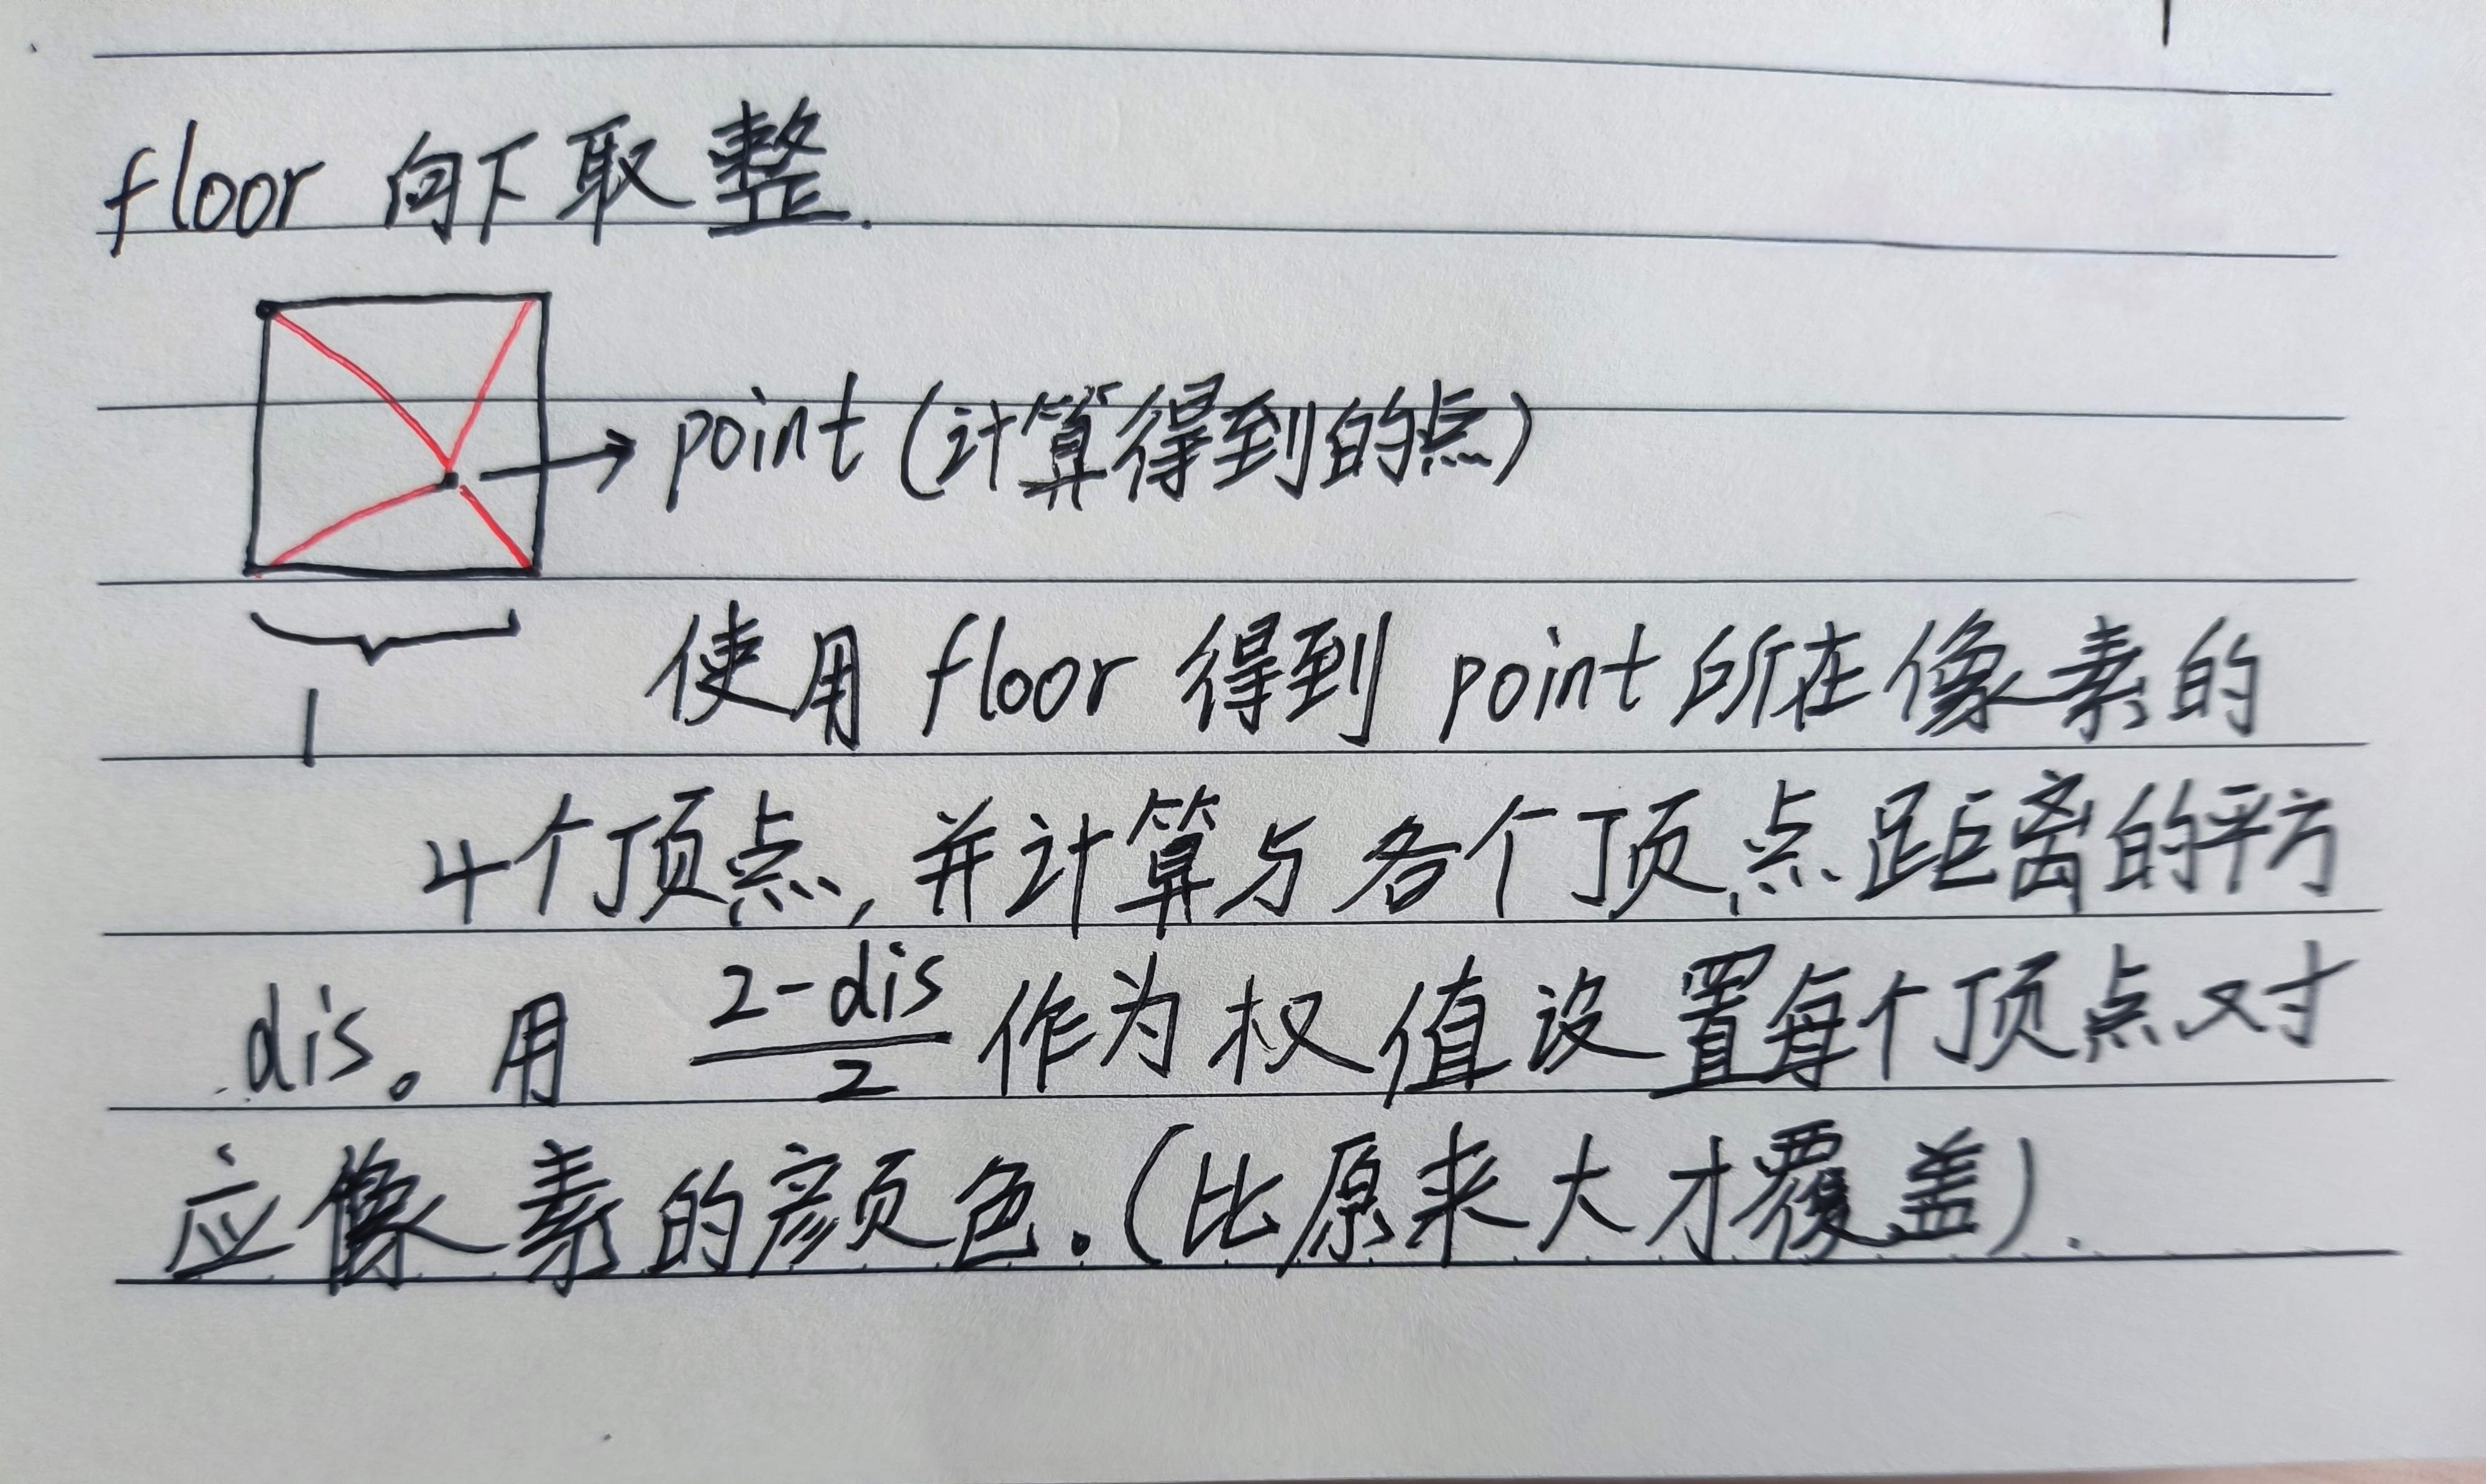 floor 向下取整.
point (计算得到的点)
1
使用 floor 得到 point 所在像素的
4个顶点, 并计算与各个顶点距离的平方
dis。用 \frac{2-dis}{2} 作为权值设置每个顶点对
应像素的颜色.(比原来大才覆盖).